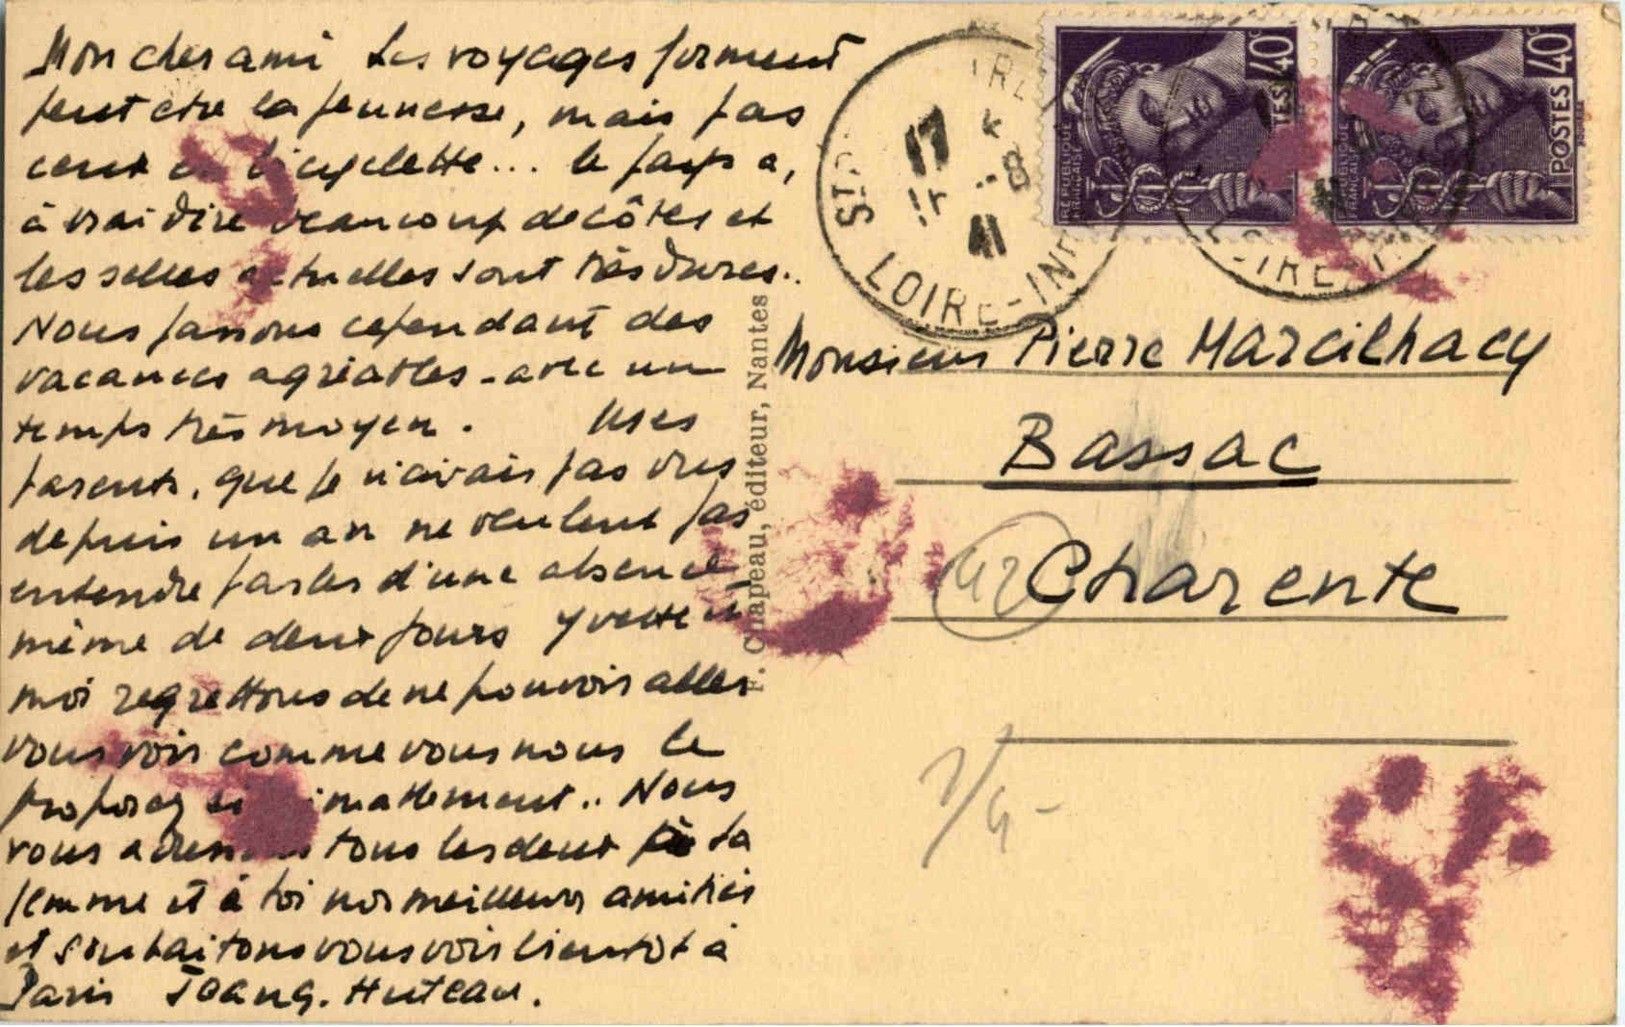 Mon cher ami Les voyages forment
peut etre la jeunesse, mais pas
ceux en bicyclette... le pays a,
à vrai dire beaucoup de côtes et
les selles actuelles sont très dures..
Nous passons cependant des
vacances agréables - avec un
temps très moyen. Mes
parents, que je n'avais pas vus
depuis un an ne veulent pas
entendre parler d'une absence
même de deux jours Yvette et
moi regrettons de ne pouvoir aller
vous voir comme vous nous le
proposez si .. Nous
vous adressons tous les deux à ta
femme et à toi nos meilleures amitiés
et souhaitons vous voir bientôt à
Paris Huteau.
F. Chapeau, éditeur, Nantes
ST.
LOIRE-INF
17
11
8
41
RÉPUBLIQUE FRANÇAISE
40c
POSTES
40c
POSTES
LOIRE-INF
Monsieur Pierre Marcilhacy
Bassac
Charente